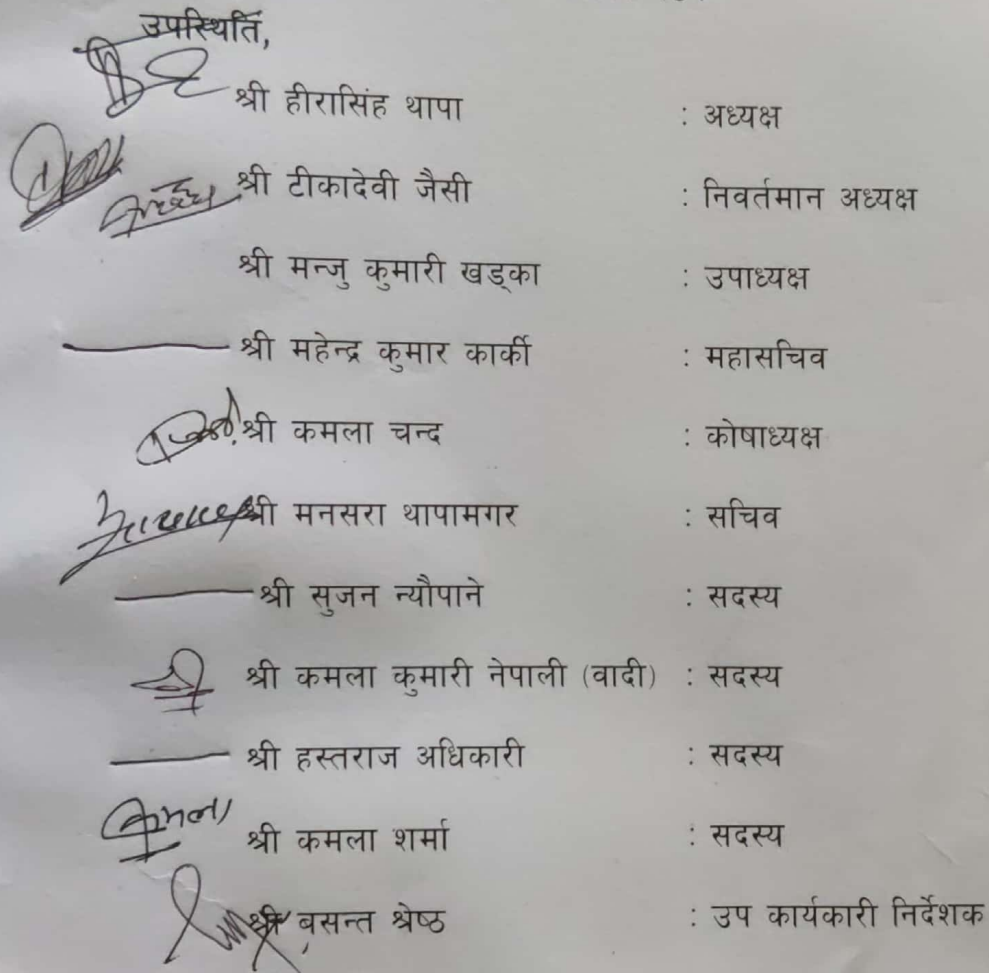 उपस्थिति,
श्री हीरासिंह थापा : अध्यक्ष
श्री टीकादेवी जैसी : निवर्तमान अध्यक्ष
श्री मन्जु कुमारी खड्का : उपाध्यक्ष
श्री महेन्द्र कुमार कार्की : महासचिव
श्री कमला चन्द : कोषाध्यक्ष
श्री मनसरा थापामगर : सचिव
श्री सुजन न्यौपाने : सदस्य
श्री कमला कुमारी नेपाली (वादी) : सदस्य
श्री हस्तराज अधिकारी : सदस्य
कमला श्री कमला शर्मा : सदस्य
श्री बसन्त श्रेष्ठ : उप कार्यकारी निर्देशक